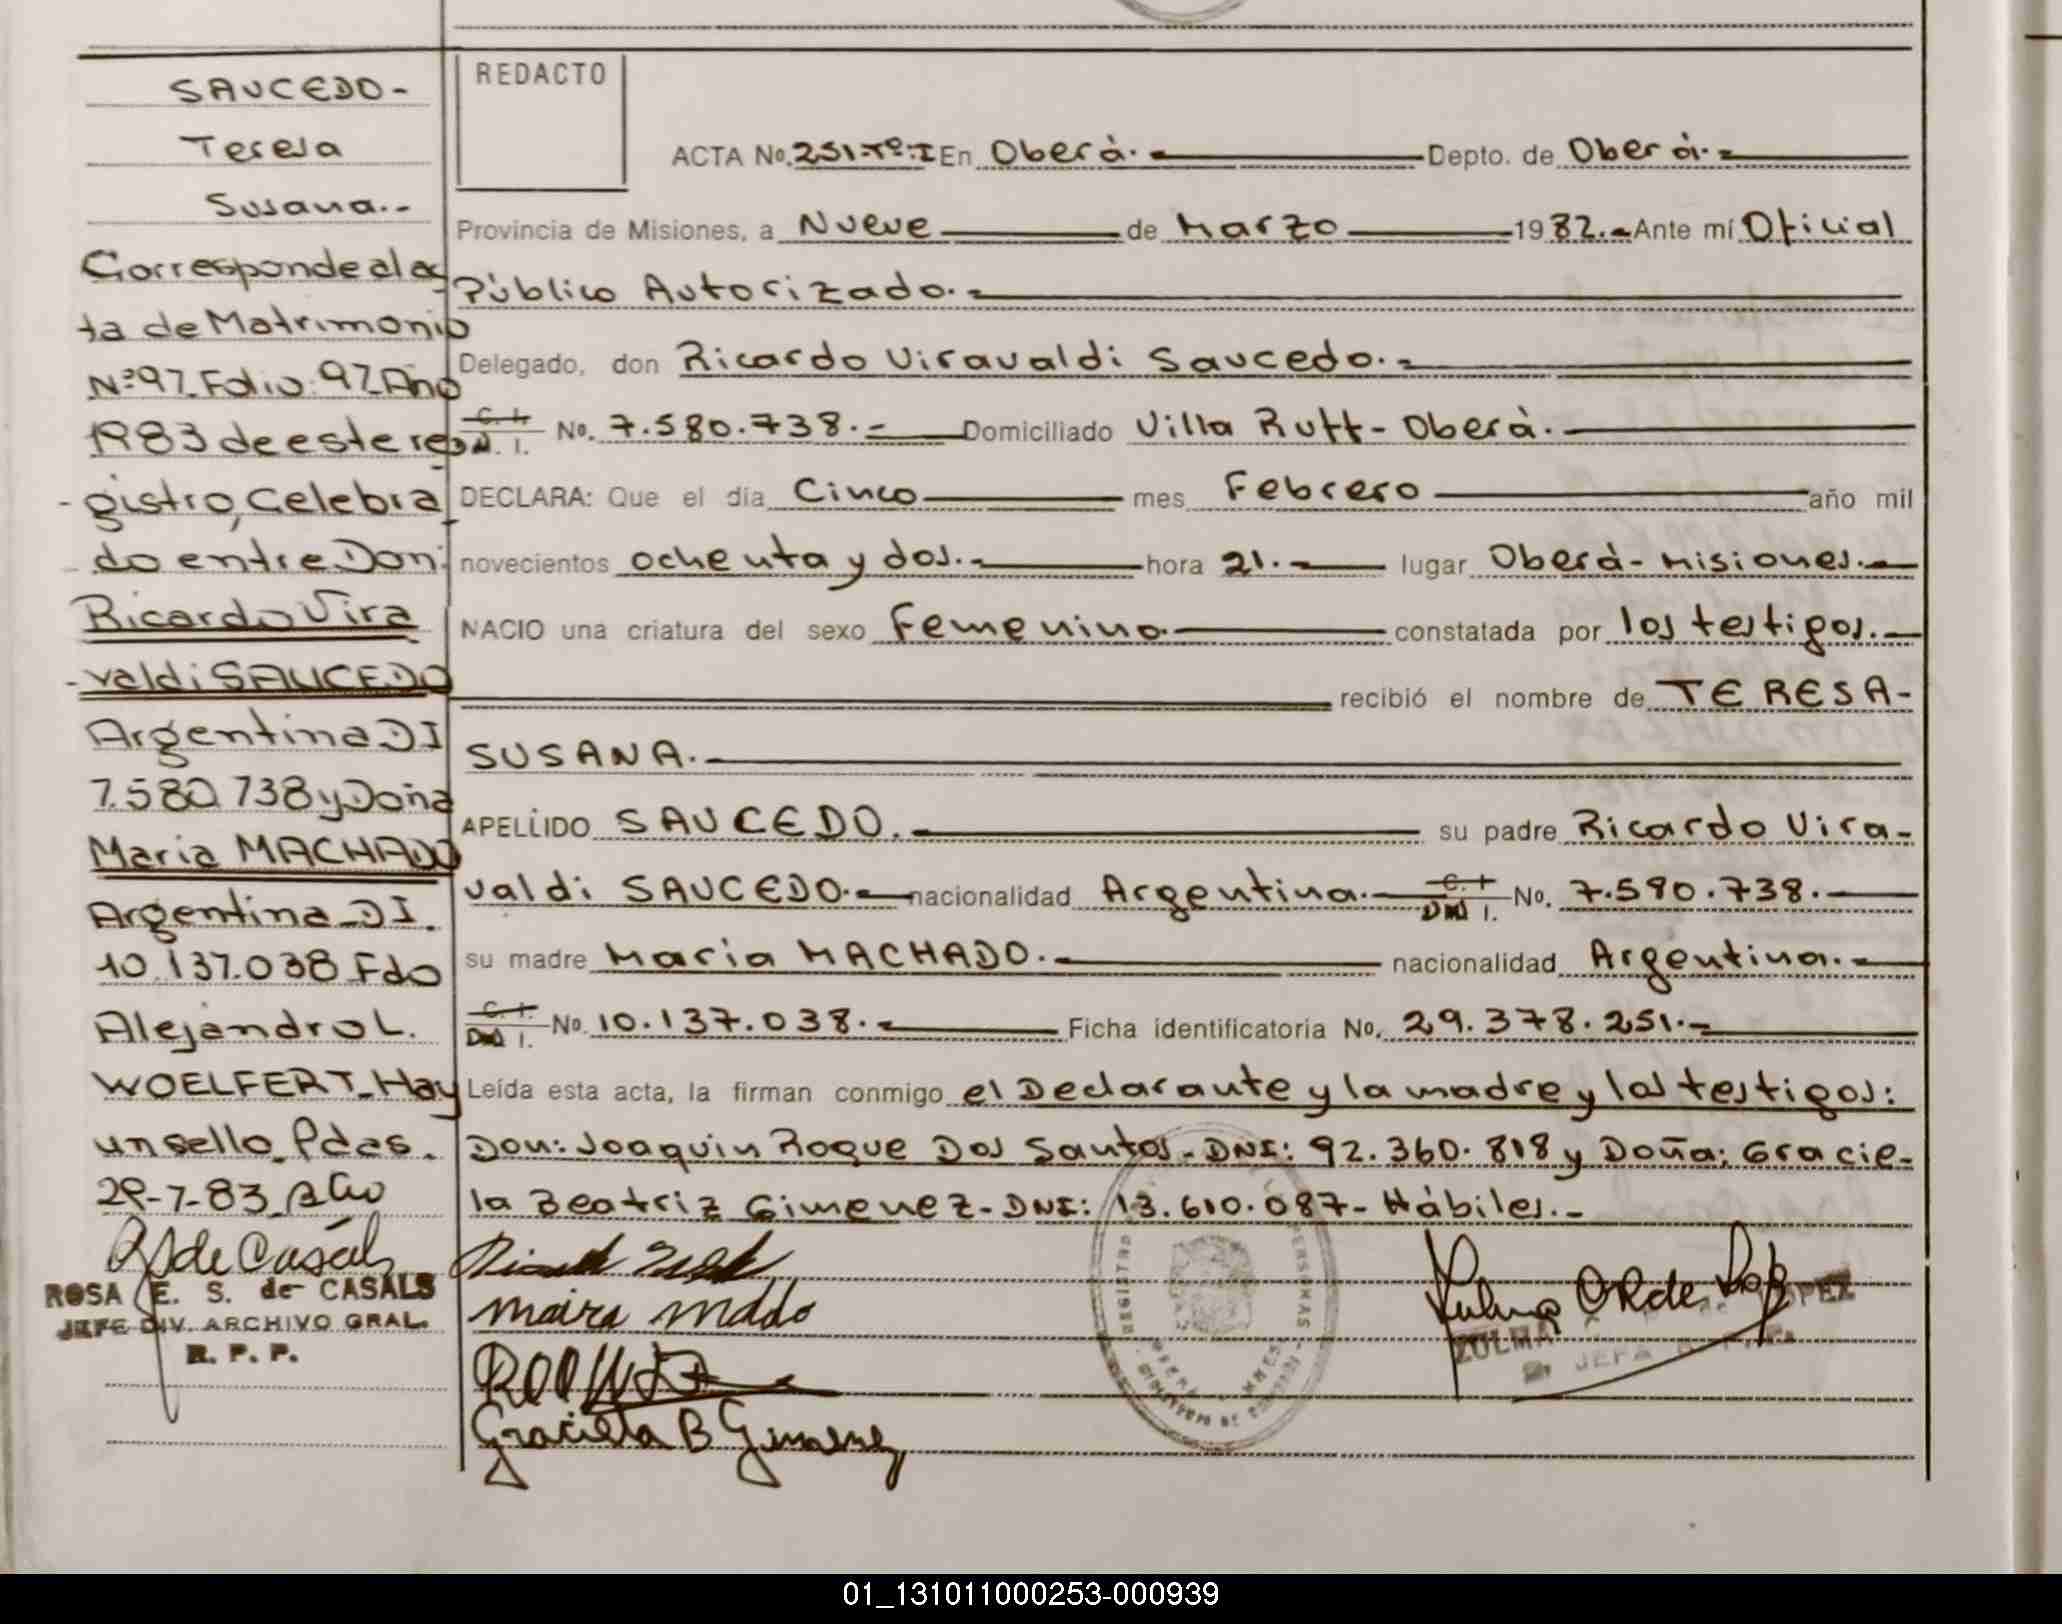 SAUCEDO-
Teresa
Susana.-
Corresponde al ac
ta de Matrimonio
Nº 97 Folio: 97 Año
1983 de este re
gistro, Celebra
do entre Don:
Ricardo Vira
valdi SAUCEDO
Argentina DI
7.580.738 y Doña
Maria MACHADO
Argentina DI.
10.137.038 Fdo
Alejandro L.
WOELFERT-Hay
un sello. Pdas.
29-7-83
RS de Casals
ROSA E. S. de CASALS
JEFE DIV. ARCHIVO GRAL.
R. P. P.
REDACTO
ACTA No. 251-Tº-I En Oberá.- Depto. de Oberá.-
Provincia de Misiones, a Nueve de Marzo 1982.- Ante mí Oficial
Público Autorizado.-
Delegado, don Ricardo Viravaldi Saucedo.-
C. I.
D. I. No. 7.580.738.- Domiciliado Villa Rutt-Oberá.-
DECLARA: Que el día Cinco mes Febrero año mil
novecientos ochenta y dos.- hora 21.- lugar Oberá-Misiones.-
NACIO una criatura del sexo Femenino constatada por los testigos.-
recibió el nombre de TERESA-
SUSANA.-
APELLIDO SAUCEDO.- su padre Ricardo Vira-
valdi SAUCEDO.- nacionalidad Argentina.- C. I. DNI No. 7.580.738.-
su madre Maria MACHADO.- nacionalidad Argentina.-
C. I. DNI No. 10.137.038.- Ficha identificatoria No. 29.378.251.-
Leída esta acta, la firman conmigo el Declarante y la madre y los testigos:
Don: Joaquin Roque Dos Santos-DNI: 92.360.818 y Doña: Gracie-
la Beatriz Gimenez-DNI: 13.610.087- Hábiles.-
Graciela B Gimenez
ZULMA LOPEZ
JEFA
01_131011000253-000939